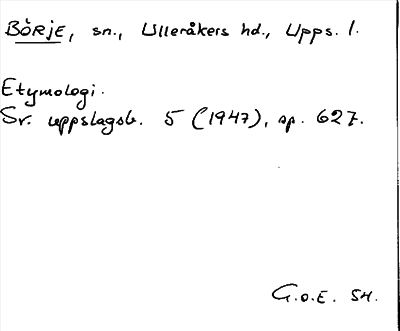 BÖRJE, sn., Ulleråkers hd., Upps. l.
Etymologi.
Sv. uppslagsb. 5 (1947), sp. 627.
G.o.E. SH.